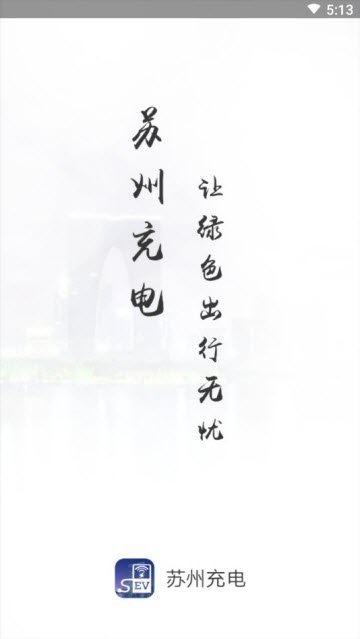 5:13
苏州充电
让绿色出行无忧
S EV
苏州充电